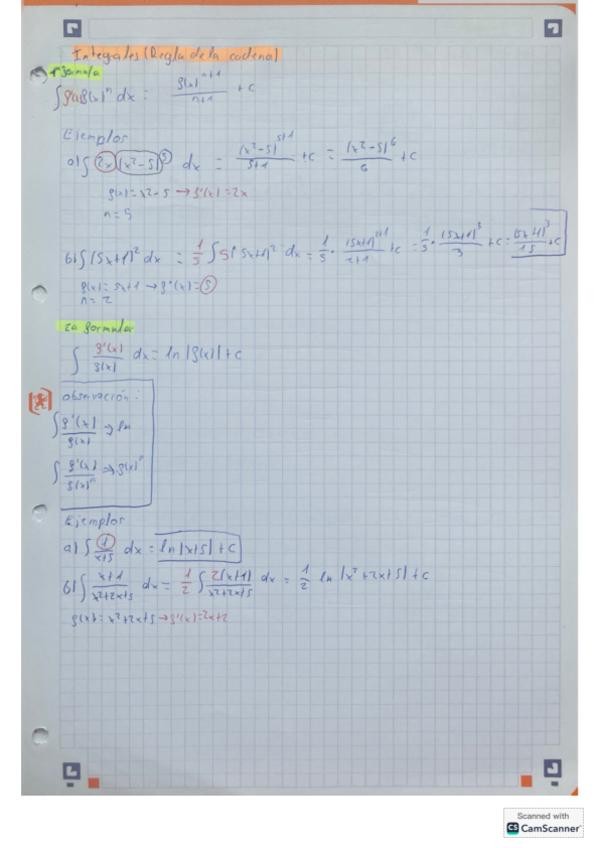 Integrales (Regla de la cadena)
1ª formula
∫ f'(x) f(x)^n dx = f(x)^(n+1) / (n+1) + C
Ejemplos
a) ∫ 2x (x²-5)^5 dx = (x²-5)^(5+1) / (5+1) + C = (x²-5)^6 / 6 + C
f(x) = x²-5 → f'(x) = 2x
n = 5
b) ∫ (5x+1)² dx = 1/5 ∫ 5(5x+1)² dx = 1/5 · (5x+1)^(2+1) / (2+1) + C = 1/5 · (5x+1)³ / 3 + C = (5x+1)³ / 15 + C
f(x) = 5x+1 → f'(x) = 5
n = 2
2ª formula
∫ f'(x) / f(x) dx = ln |f(x)| + C
observación:
∫ f'(x) / f(x) → ln
∫ f'(x) / f(x)^n → f(x)^n
Ejemplos
a) ∫ 1 / (x+5) dx = ln |x+5| + C
b) ∫ (x+1) / (x²+2x+5) dx = 1/2 ∫ 2(x+1) / (x²+2x+5) dx = 1/2 ln |x²+2x+5| + C
f(x) = x²+2x+5 → f'(x) = 2x+2
Scanned with
CS CamScanner